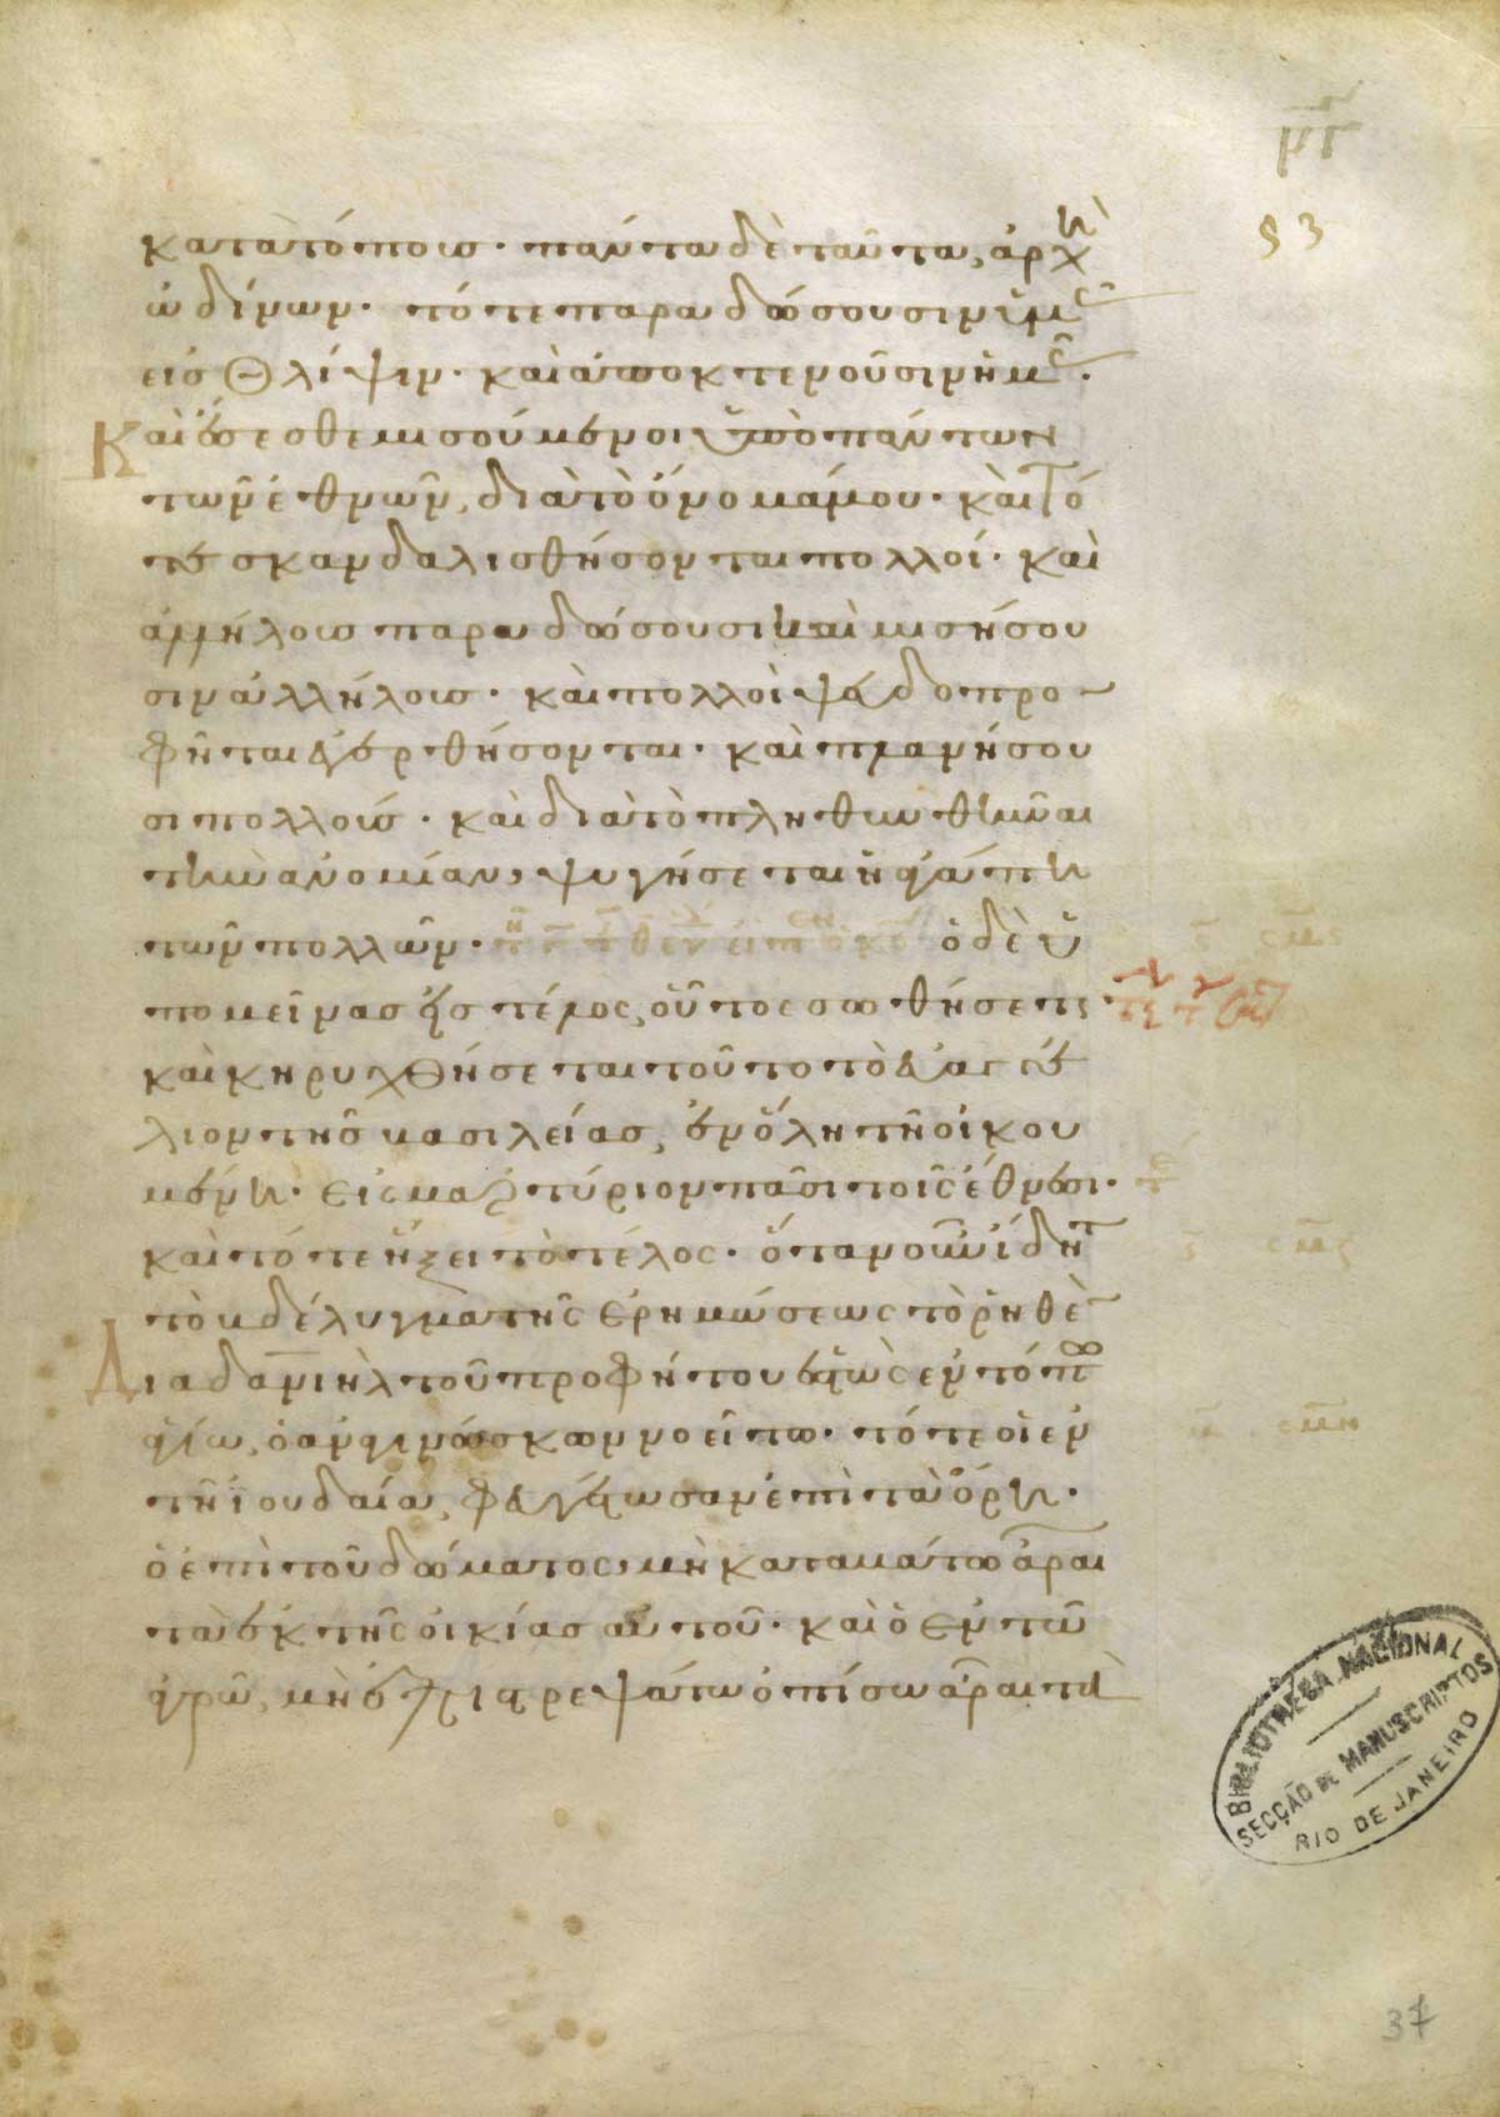 μγ
53
κατατόπουσ· πάντα δὲ ταῦτα, ἀρχὴ
ὠδίνων· τότε παραδώσουσιν ὑμᾶς
εἰσ θλίψιν· καὶ ἀποκτενοῦσιν ὑμᾶς·
Καὶ ἔσεσθε μισούμενοι ὑπὸ πάντων
τῶν ἐθνῶν, διὰ τὸ ὄνομά μου· καὶ τό
τε σκανδαλισθήσονται πολλοί· καὶ
ἀλλήλουσ παραδώσουσι καὶ μισήσου
σιν ἀλλήλουσ· καὶ πολλοὶ ψευδοπρο
φῆται ἐγερθήσονται· καὶ πλανήσου
σι πολλούσ· καὶ διὰ τὸ πληθυνθῆναι
τὴν ἀνομίαν, ψυγήσεται ἡ ἀγάπη
τῶν πολλῶν· ὁ δὲ ὑ
πομείνασ εἰσ τέλος, οὗτος σωθήσεται·
καὶ κηρυχθήσεται τοῦτο τὸ εὐαγγέ
λιον τῆσ βασιλείασ, ἐν ὅλη τῆ οἰκου
μένη· εἰς μαρτύριον πᾶσι τοῖς ἔθνεσι·
καὶ τότε ἥξει τὸ τέλος· ὅταν οὖν ἴδητε
τὸ βδέλυγμα τῆς ἐρημώσεως τὸ ῥηθὲν
Δια δανιὴλ τοῦ προφήτου ἑστὼς ἐν τόπω
ἁγίω, ὁ ἀναγινώσκων νοείτω· τότε οἱ ἐν
τῆ ἰουδαία, φευγέτωσαν ἐπὶ τὰ ὄρη·
ὁ ἐπὶ τοῦ δώματος, μὴ καταβάτω ἆραι
τὰ ἐκ τῆς οἰκίασ αὐτοῦ· καὶ ὁ ἐν τῶ
ἀγρῶ, μὴ ἐπιστρεψάτω ὀπίσω ἆραι τὰ
BIBLIOTHECA NACIONAL
SECÇÃO DE MANUSCRIPTOS
RIO DE JANEIRO
37